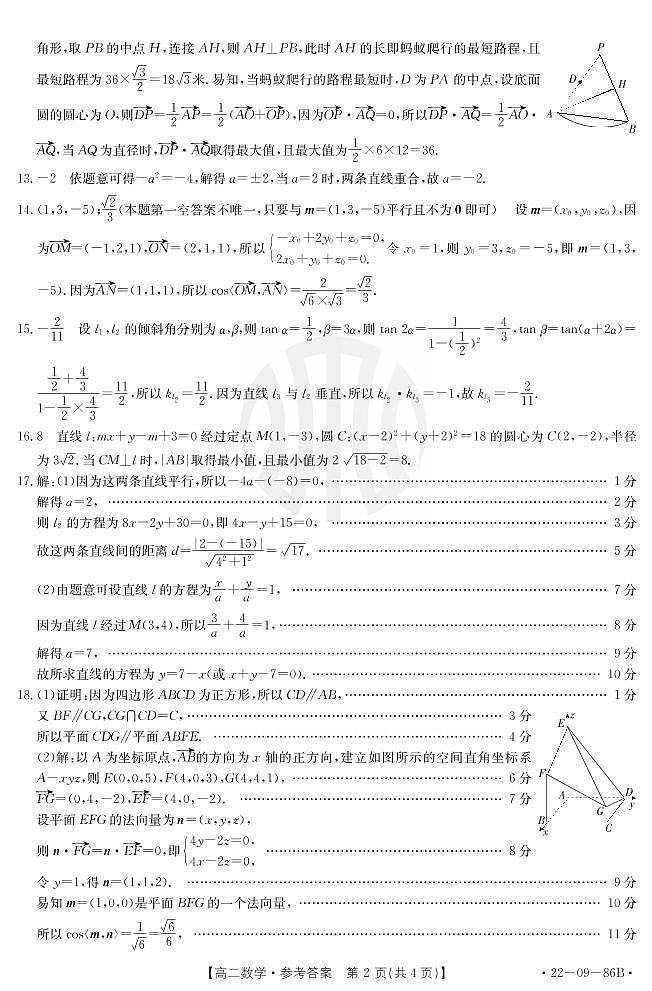 角形,取 PB 的中点 H,连接 AH,则 AH⊥PB,此时 AH 的长即蚂蚁爬行的最短路程,且
最短路程为 36×√3/2=18√3米. 易知,当蚂蚁爬行的路程最短时,D 为 PA 的中点,设底面
圆的圆心为 O,则DP=1/2AP=1/2(AO+OP),因为OP·AQ=0,所以DP·AQ=1/2AO·
AQ,当 AQ 为直径时,DP·AQ取得最大值,且最大值为1/2×6×12=36.
P
D
H
A
B
13. -2 依题意可得-a²=-4,解得 a=±2,当 a=2 时,两条直线重合,故 a=-2.
14. (1,3,-5);√2/3(本题第一空答案不唯一,只要与 m=(1,3,-5)平行且不为 0 即可) 设 m=(x₀,y₀,z₀),因
为OM=(-1,2,1),ON=(2,1,1),所以{-x₀+2y₀+z₀=0, 2x₀+y₀+z₀=0. 令 x₀=1,则 y₀=3,z₀=-5,即 m=(1,3,
-5). 因为AN=(1,1,1),所以 cos⟨OM,AN⟩=2/(√6×√3)=√2/3.
15. -2/11 设 l₁,l₂ 的倾斜角分别为 α,β,则 tan α=1/2,β=3α,则 tan 2α=1/(1-(1/2)²)=4/3,tan β=tan(α+2α)=
(1/2+4/3)/(1-1/2×4/3)=11/2,所以 k_l₂=11/2. 因为直线 l₃ 与 l₂ 垂直,所以 k_l₂·k_l₃=-1,故 k_l₃=-2/11.
16. 8 直线 l:mx+y-m+3=0 经过定点 M(1,-3),圆 C:(x-2)²+(y+2)²=18 的圆心为 C(2,-2),半径
为 3√2. 当 CM⊥l 时,|AB|取得最小值,且最小值为 2√(18-2)=8.
17. 解:(1)因为这两条直线平行,所以-4a-(-8)=0, …… 1 分
解得 a=2, …… 2 分
则 l₂ 的方程为 8x-2y+30=0,即 4x-y+15=0, …… 3 分
故这两条直线间的距离 d=|2-(-15)|/√(4²+1²)=√17. …… 5 分
(2)由题意可设直线 l 的方程为x/a+y/a=1, …… 7 分
因为直线 l 经过 M(3,4),所以3/a+4/a=1, …… 8 分
解得 a=7, …… 9 分
故所求直线的方程为 y=7-x(或 x+y-7=0). …… 10 分
18. (1)证明:因为四边形 ABCD 为正方形,所以 CD∥AB, …… 1 分
又 BF∥CG,CG∩CD=C, …… 3 分
所以平面 CDG∥平面 ABFE. …… 4 分
(2)解:以 A 为坐标原点,AB的方向为 x 轴的正方向,建立如图所示的空间直角坐标系
A-xyz,则 E(0,0,5),F(4,0,3),G(4,4,1), …… 6 分
FG=(0,4,-2),EF=(4,0,-2). …… 7 分
设平面 EFG 的法向量为 n=(x,y,z),
则 n·FG=n·EF=0,即{4y-2z=0, 4x-2z=0, …… 8 分
令 y=1,得 n=(1,1,2). …… 9 分
易知 m=(1,0,0)是平面 BFG 的一个法向量, …… 10 分
所以 cos⟨m,n⟩=1/√6=√6/6, …… 11 分
z
E
F
A
D
y
G
B
C
x
【高二数学·参考答案 第 2 页(共 4 页)】 ·22-09-86B·